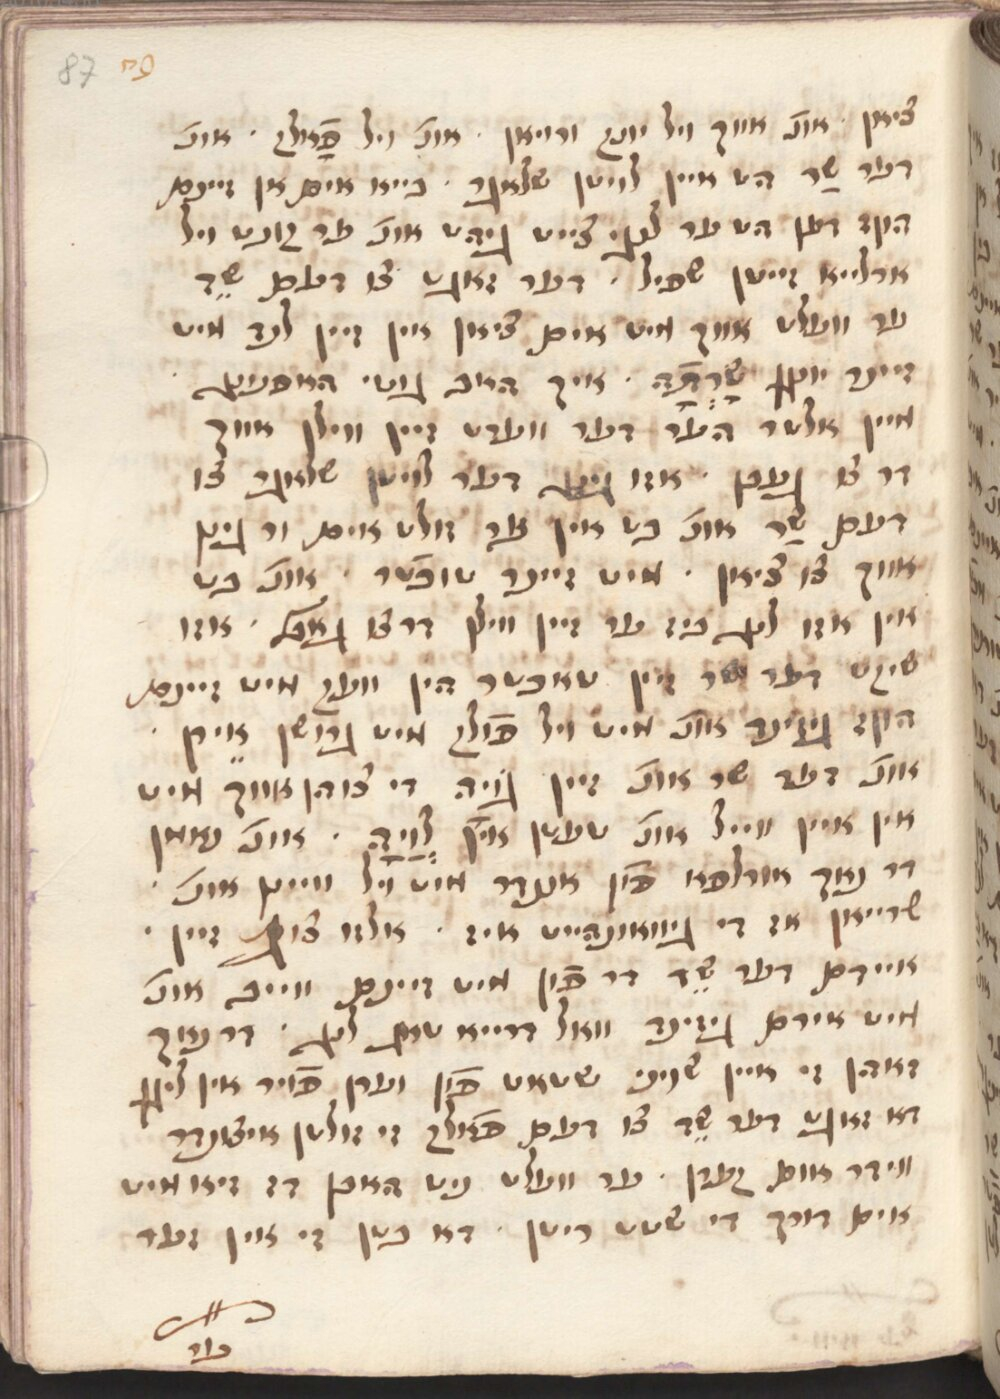 87 פח
ציאן · אונ אווך ויל יונג ורויאן · אונ ויל פֿאלג · אונ
דער שר הט איין לויטן שלאגר · בייא אים אן זיינם
הוז דען הט ער לנגי צייט גיהט אונ ער קונט ויל
ארלייא זייטן שפיל · דער זאגט צו דעם שֵד
ער וועלט אווך מיט אים ציאן אין זיין לנד מיט
זיינר יונגן שֵדְתַה · איך האב גוטי האפנונג
מיין אלטר הער דער ווערט זיין ווילן אווך
דר צו געבן · אזו גינג דער לויטן שלאגר צו
דעם שַר אונ בט אין ער זולט אים ור גינן
אווך צו ציאן · מיט זיינר טוכטר · אונ בט
אין אזו לנג ביז ער זיין ווילן דר צו גאב · אזו
שיקט דער שר זיין טאכטר הין וועג מיט זיינם
הוז גיזינד אונ מיט ויל פֿולק מיט גרושן
אונ דער שר אונ זיין גויה די צוהן אווך מיט
אין איין ווייל אונ טעטן אין לויה · אונ נאמן
דר נאך אורלפא פֿון אננדר מיט ויל וויינן אונ
שרייאן אז די גיוואונהייט איז · אלזו צוגן זיין ·
איידם דער שֵד דר פֿון מיט זיינם ווייב אונ
מיט אירם גיזינד וואל דרייא טאג לנג · דר נאך
זאהן זי איין שויני שטאט פֿון וערן פֿויר אין ליגן
דא זאגט דער שֵד צו דעם פֿאלק זי זולטן איצונדר
ווידר אום קערן · ער וועלט ניט האבן דז זיא מיט
אים דורך די שטט ריטן · דא בטן זי אין זער